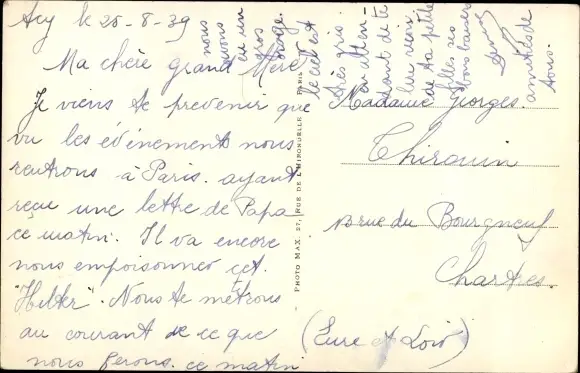 Acy le 28-8-39
Ma chère grand Mère
Je viens te prévenir que
vu les événements nous
rentrons à Paris. ayant
reçu une lettre de Papa
ce matin. Il va encore
nous empoisonner cet
"Hilter". Nous te métrons
au courant de ce que
nous ferons. ce matin
nous
avons
eu un
gros
orage.
le ciel est
très gris.
en atten-
dant de te
lire reçoit
de ta petite
filles ses
bons baisers
amitiés de
tous.
PHOTO MAX. 27, RUE DE L'HIRONDELLE PARIS
Madame Georges.
Thirouin
rue du Bourgneuf
Chartres.
(Eure et Loir)